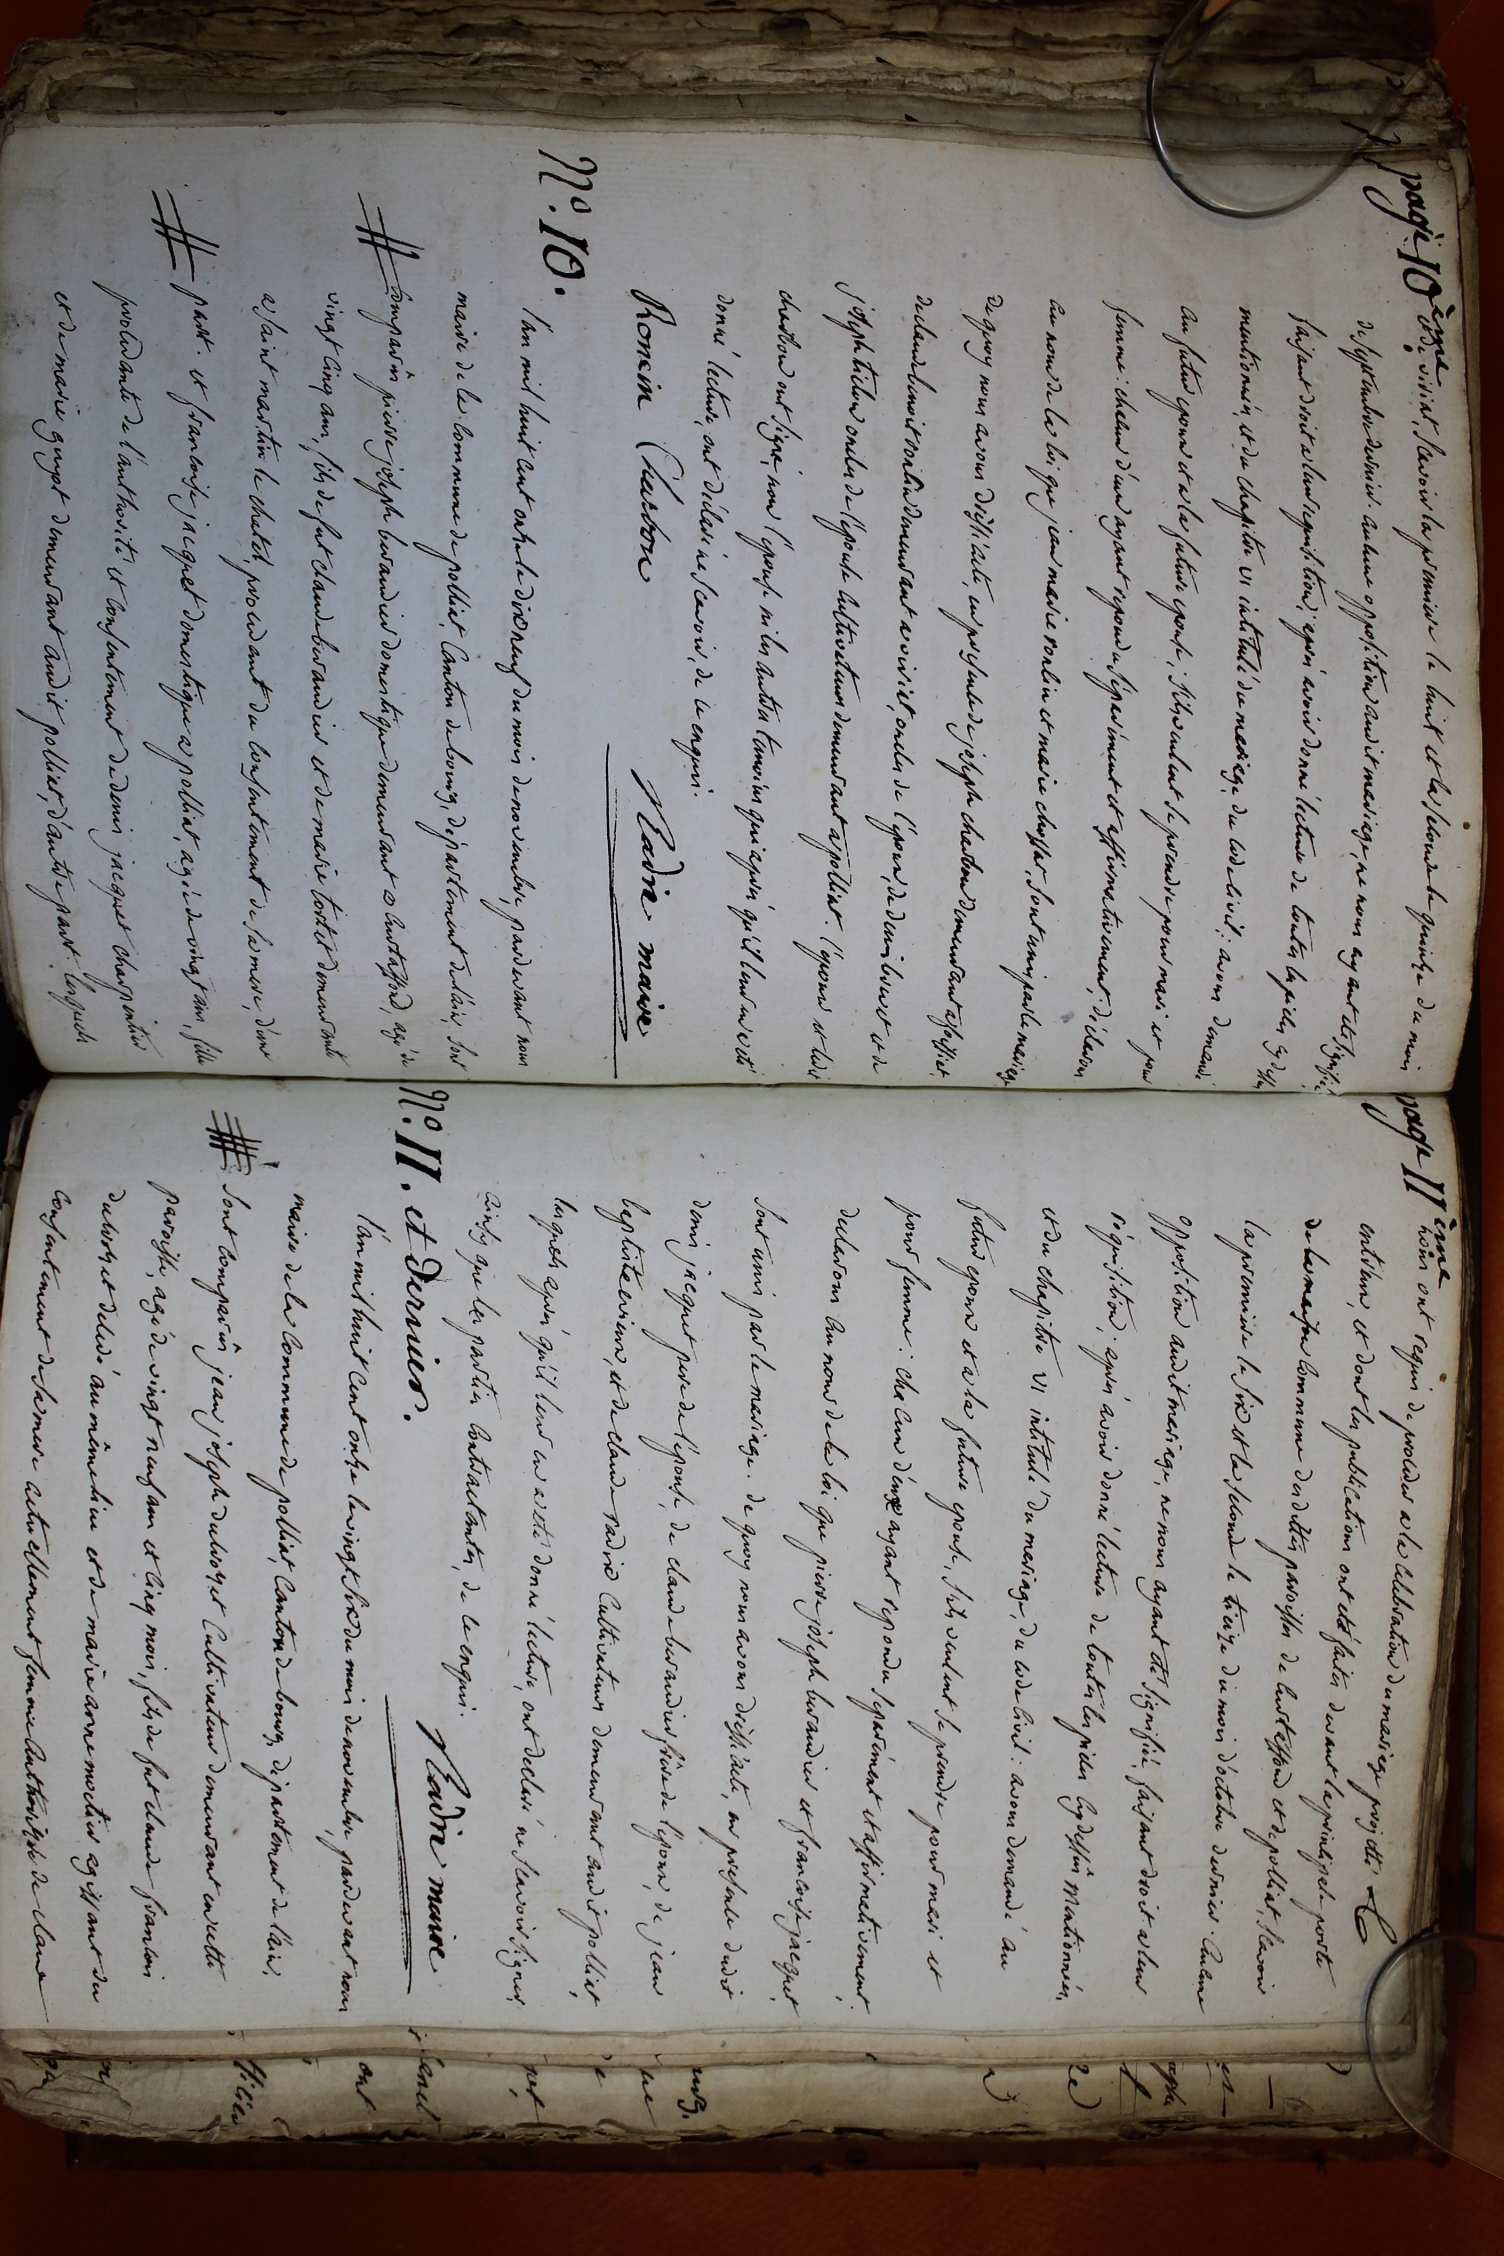 page 10ème
et de viriat, scavoir la premiere le huit et la seconde le quinze du mois
de septembre dernier. aucune opposition audit mariage, ne nous ayant été signifié
faisant droit a leur requisition; après avoir donné lecture de toutes les pieces cy dessus
mentionnées et du chapitre VI intitulé du mariage, du code civil: avons demandé
au futur epoux et a la future epouse, s'ils veulent se prendre pour mari et pour
femme: chacun d'eux ayant repondu séparément et affirmativement, déclarons
au nom de la loi que jean marie et marie sont unis par le mariage
de quoy nous avons dressé acte, en presence de joseph charbon demeurant
de claude benoit demeurant a viriat, oncles de l'epoux, de denis et de
joseph oncles de l'epouse cultivateurs demeurant a polliat. l'epoux et ledit
charbon ont signé, non l'epouse ni les autres temoins qui après qu'il leur en a été
donné lecture, ont déclaré ne scavoir, de ce enquis.
Roncin Charbon Nadin maire
N.º 10.
l'an mil huit cent onze le dix neuf du mois de novembre, pardevant nous
maire de la commune de polliat, canton de bourg, département de l'ain, sont
comparûs pierre joseph buvandier domestique demeurant a curtaffond, agé de
vingt cinq ans, fils de fut claude buvandier et de marie demeurante
a saint martin le chatel, procedant du consentement de sa mere, d'une
part. et francoise jacquet domestique a polliat, agée de vingt ans, fille
procedante de l'authorité et consentement de denis jacquet charpentier
et de marie guyot demeurant audit polliat, d'autre part. lesquels
page 11ème
nous ont requis de proceder a la celebration du mariage projetté
entr'eux, et dont les publications ont été faites devant la principale porte
de la maison commune desdittes paroisses de curtaffond et de polliat, scavoir
la premiere le six et la seconde le treize du mois d'octobre dernier. aucune
opposition audit mariage, ne nous ayant été signifiée, faisant droit a leur
réquisition; après avoir donné lecture de toutes les pieces cy dessus mentionnées,
et du chapitre VI intitulé du mariage, du code civil: avons demandé au
futur epoux et a la future epouse, s'ils veulent se prendre pour mari et
pour femme: chacun d'eux ayant repondu séparément et affirmativement,
declarons au nom de la loi que pierre joseph buvandier et francoise jacquet,
sont unis par le mariage. de quoy nous avons dressé acte, en presence dudit
denis jacquet pere de l'epouse, de claude buvandier frère de l'epoux, de jean
baptiste et de claude nadin cultivateurs demeurant audit polliat,
lesquels après qu'il leur en a été donné lecture, ont declaré ne scavoir signer,
ainsy que les parties contractantes, de ce enquis.
Nadin maire
N.º 11. et dernier.
l'an mil huit cent onze le vingt six du mois de novembre, pardevant nous
maire de la commune de polliat, canton de bourg, département de l'ain,
sont comparûs jean joseph cultivateur demeurant en cette
paroisse, agé de vingt neuf ans et cinq mois, fils de fut claude francois
decedé au même lieu et de marie anne agissant du
consentement de sa mere actuellement femme authorisée de claude